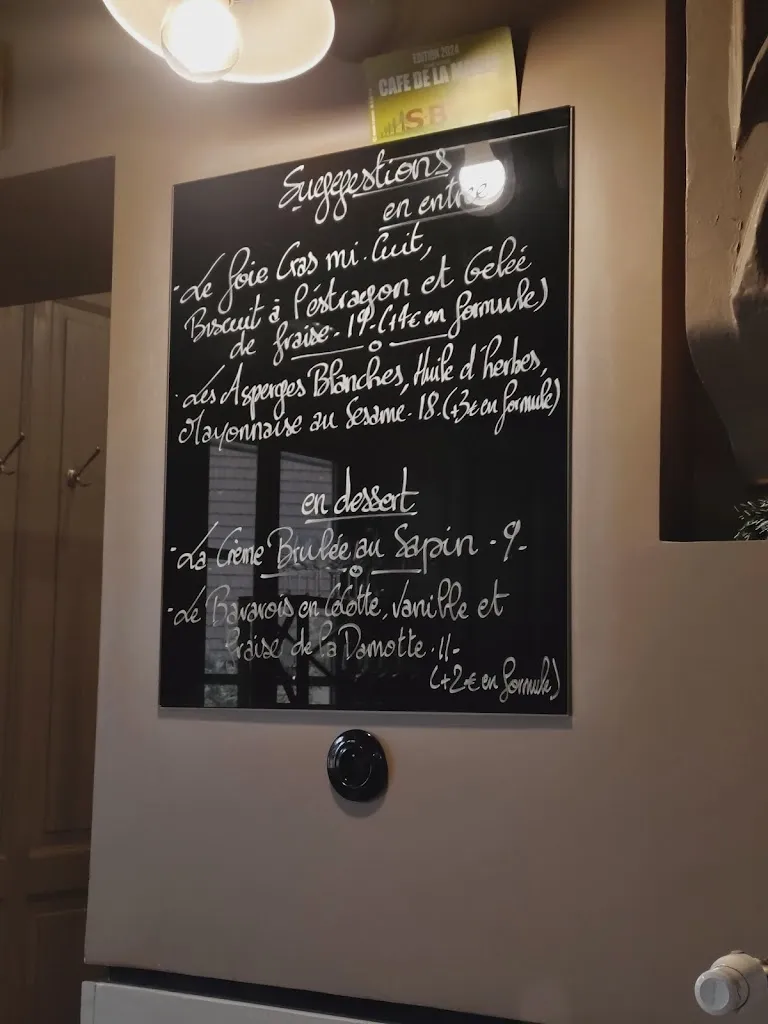 EDITION 2024
CAFE DE LA
SB
Suggestions
en entrée
- Le foie Gras mi-Cuit,
Biscuit à l'éstragon et Gelée
de fraise - 19 - (14€ en formule)
- Les Asperges Blanches, Huile d'herbes,
Mayonnaise au Sésame - 18. (+3€ en formule)
en dessert
- La Crème Brulée au Sapin - 9-
- Le Bavarois en Cocotte, vanille et
fraise de la Damotte - 11-
(+2€ en formule)